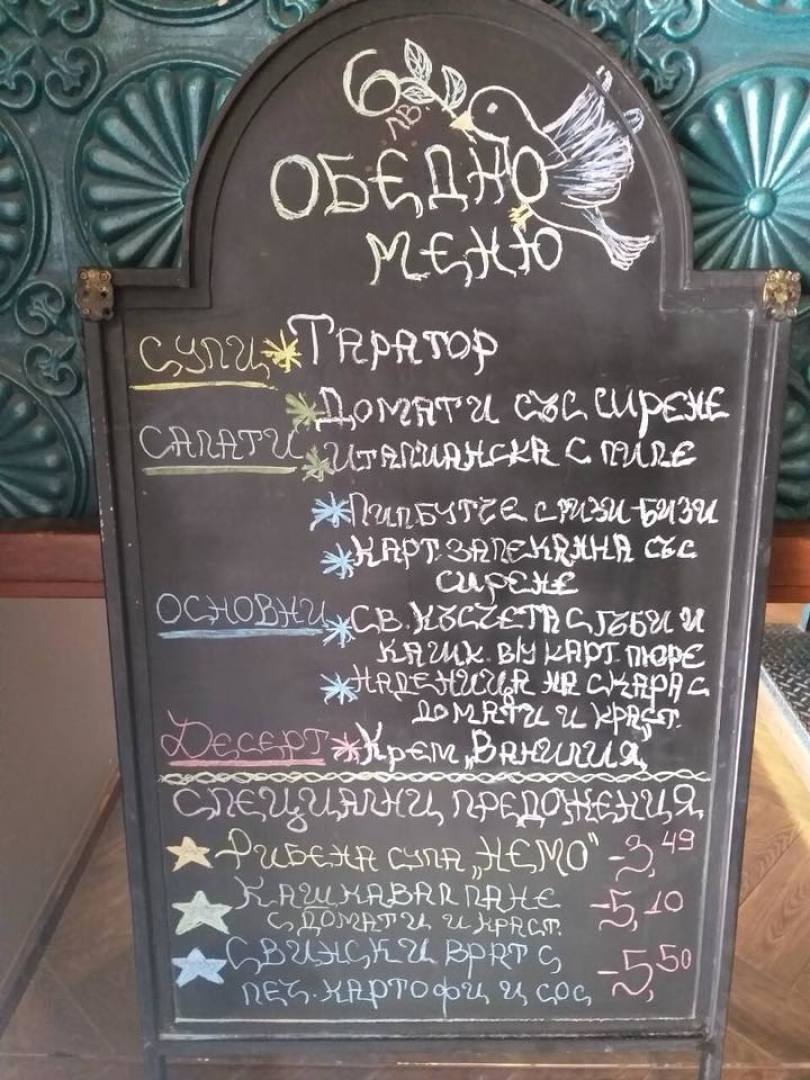 6 лв.
ОБЕДНО
МЕНЮ
СУПИ * ТАРАТОР
* ДОМАТИ СЪС СИРЕНЕ
САЛАТИ * ИТАЛИАНСКА С ПИЛЕ
* ПИЛ.БУТЧЕ С РИЗИ-БИЗИ
* КАРТ. ЗАПЕКАНКА СЪС
СИРЕНЕ
ОСНОВНИ * СВ. КЪСЧЕТА С ГЪБИ И
КАШК. В/У КАРТ. ПЮРЕ
* НАДЕНИЦА НА СКАРА С
ДОМАТИ И КРАСТ.
ДЕСЕРТ * КРЕМ „ВАНИЛИЯ"
СПЕЦИАЛНИ ПРЕДОЖЕНИЯ
РИБЕНА СУПА „НЕМО" - 3,49
КАШКАВАЛ ПАНЕ
С ДОМАТИ И КРАСТ. - 5,10
СВИНСКИ ВРАТ С
ПЕЧ. КАРТОФИ И СОС - 5,50